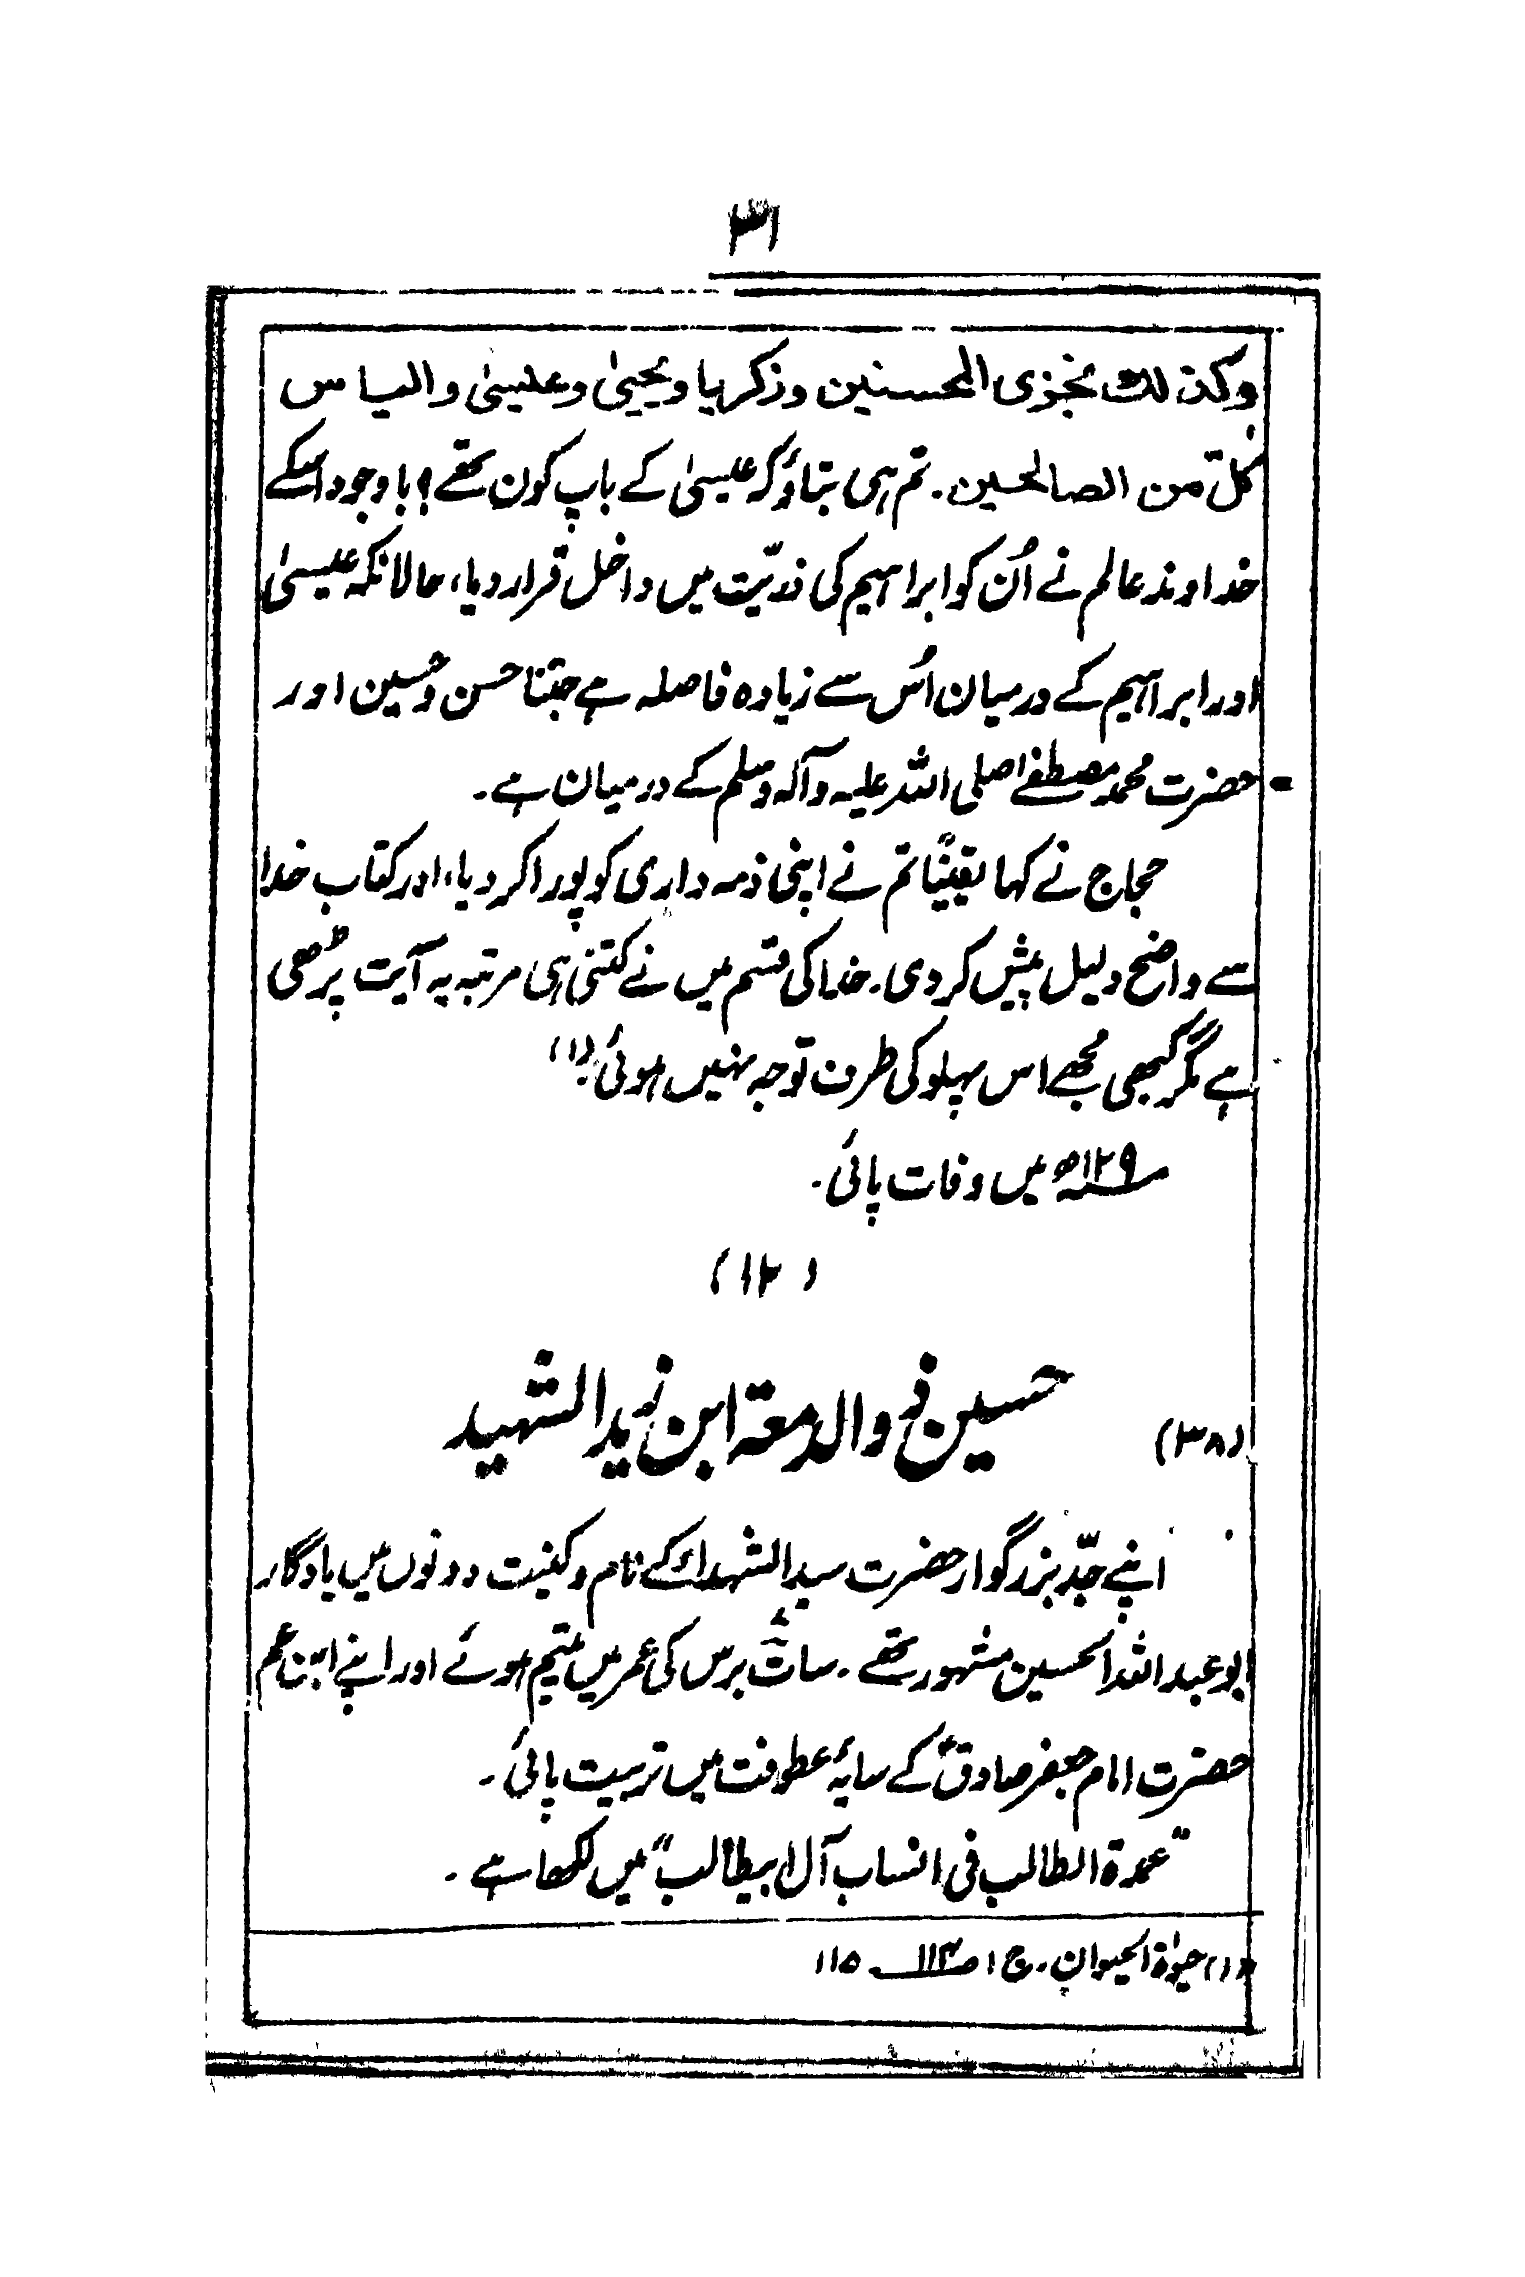 ۳۱
وکذلک نجزی المحسنین وزکریا ویحییٰ وعیسیٰ والیاس
کلّ من الصالحین۔ تم ہی بتاؤ کہ عیسیٰ کے باپ کون تھے؟ باوجود اسکے
خداوند عالم نے اُن کو ابراہیم کی ذریّت میں داخل قرار دیا، حالانکہ عیسیٰ
اور ابراہیم کے درمیان اُس سے زیادہ فاصلہ ہے جتنا حسن وحسین اور
حضرت محمد مصطفےٰ صلی اللہ علیہ وآلہ وسلم کے درمیان ہے۔
حجاج نے کہا یقیناً تم نے اپنی ذمہ داری کو پورا کر دیا، اور کتاب خدا
سے واضح دلیل پیش کر دی۔ خدا کی قسم میں نے کتنی ہی مرتبہ یہ آیت پڑھی
ہے مگر کبھی مجھے اس پہلو کی طرف توجہ نہیں ہوئی۔(۱)
۱۲۹ھ میں وفات پائی۔
(۱۲)
(۳۸) حسین ذوالدمعۃ ابن زید الشہید
اپنے جدّ بزرگوار حضرت سید الشہداء کے نام وکنیت دونوں میں یادگار
ابو عبد اللہ الحسین مشہور تھے۔ سات برس کی عمر میں یتیم ہوئے اور اپنے ابن عم
حضرت امام جعفر صادقؑ کے سایۂ عطوفت میں تربیت پائی۔
"عمدۃ الطالب فی انساب آل ابیطالب" میں لکھا ہے۔
(۱) حیوٰۃ الحیوان۔ ج ۱ ص۱۱۴ ۔ ۱۱۵